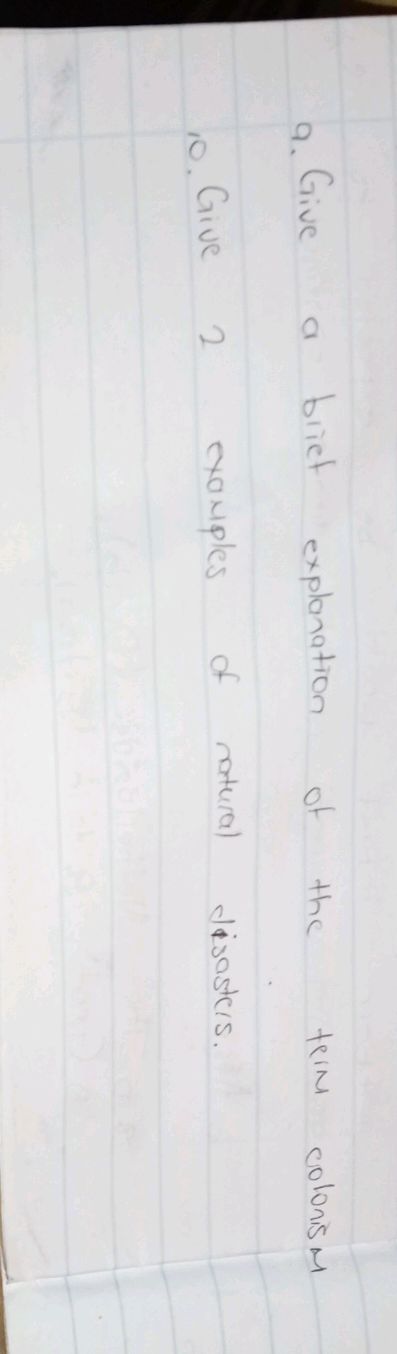 9. Give a brief explanation of the term colonism
10. Give 2 examples of natural disasters.